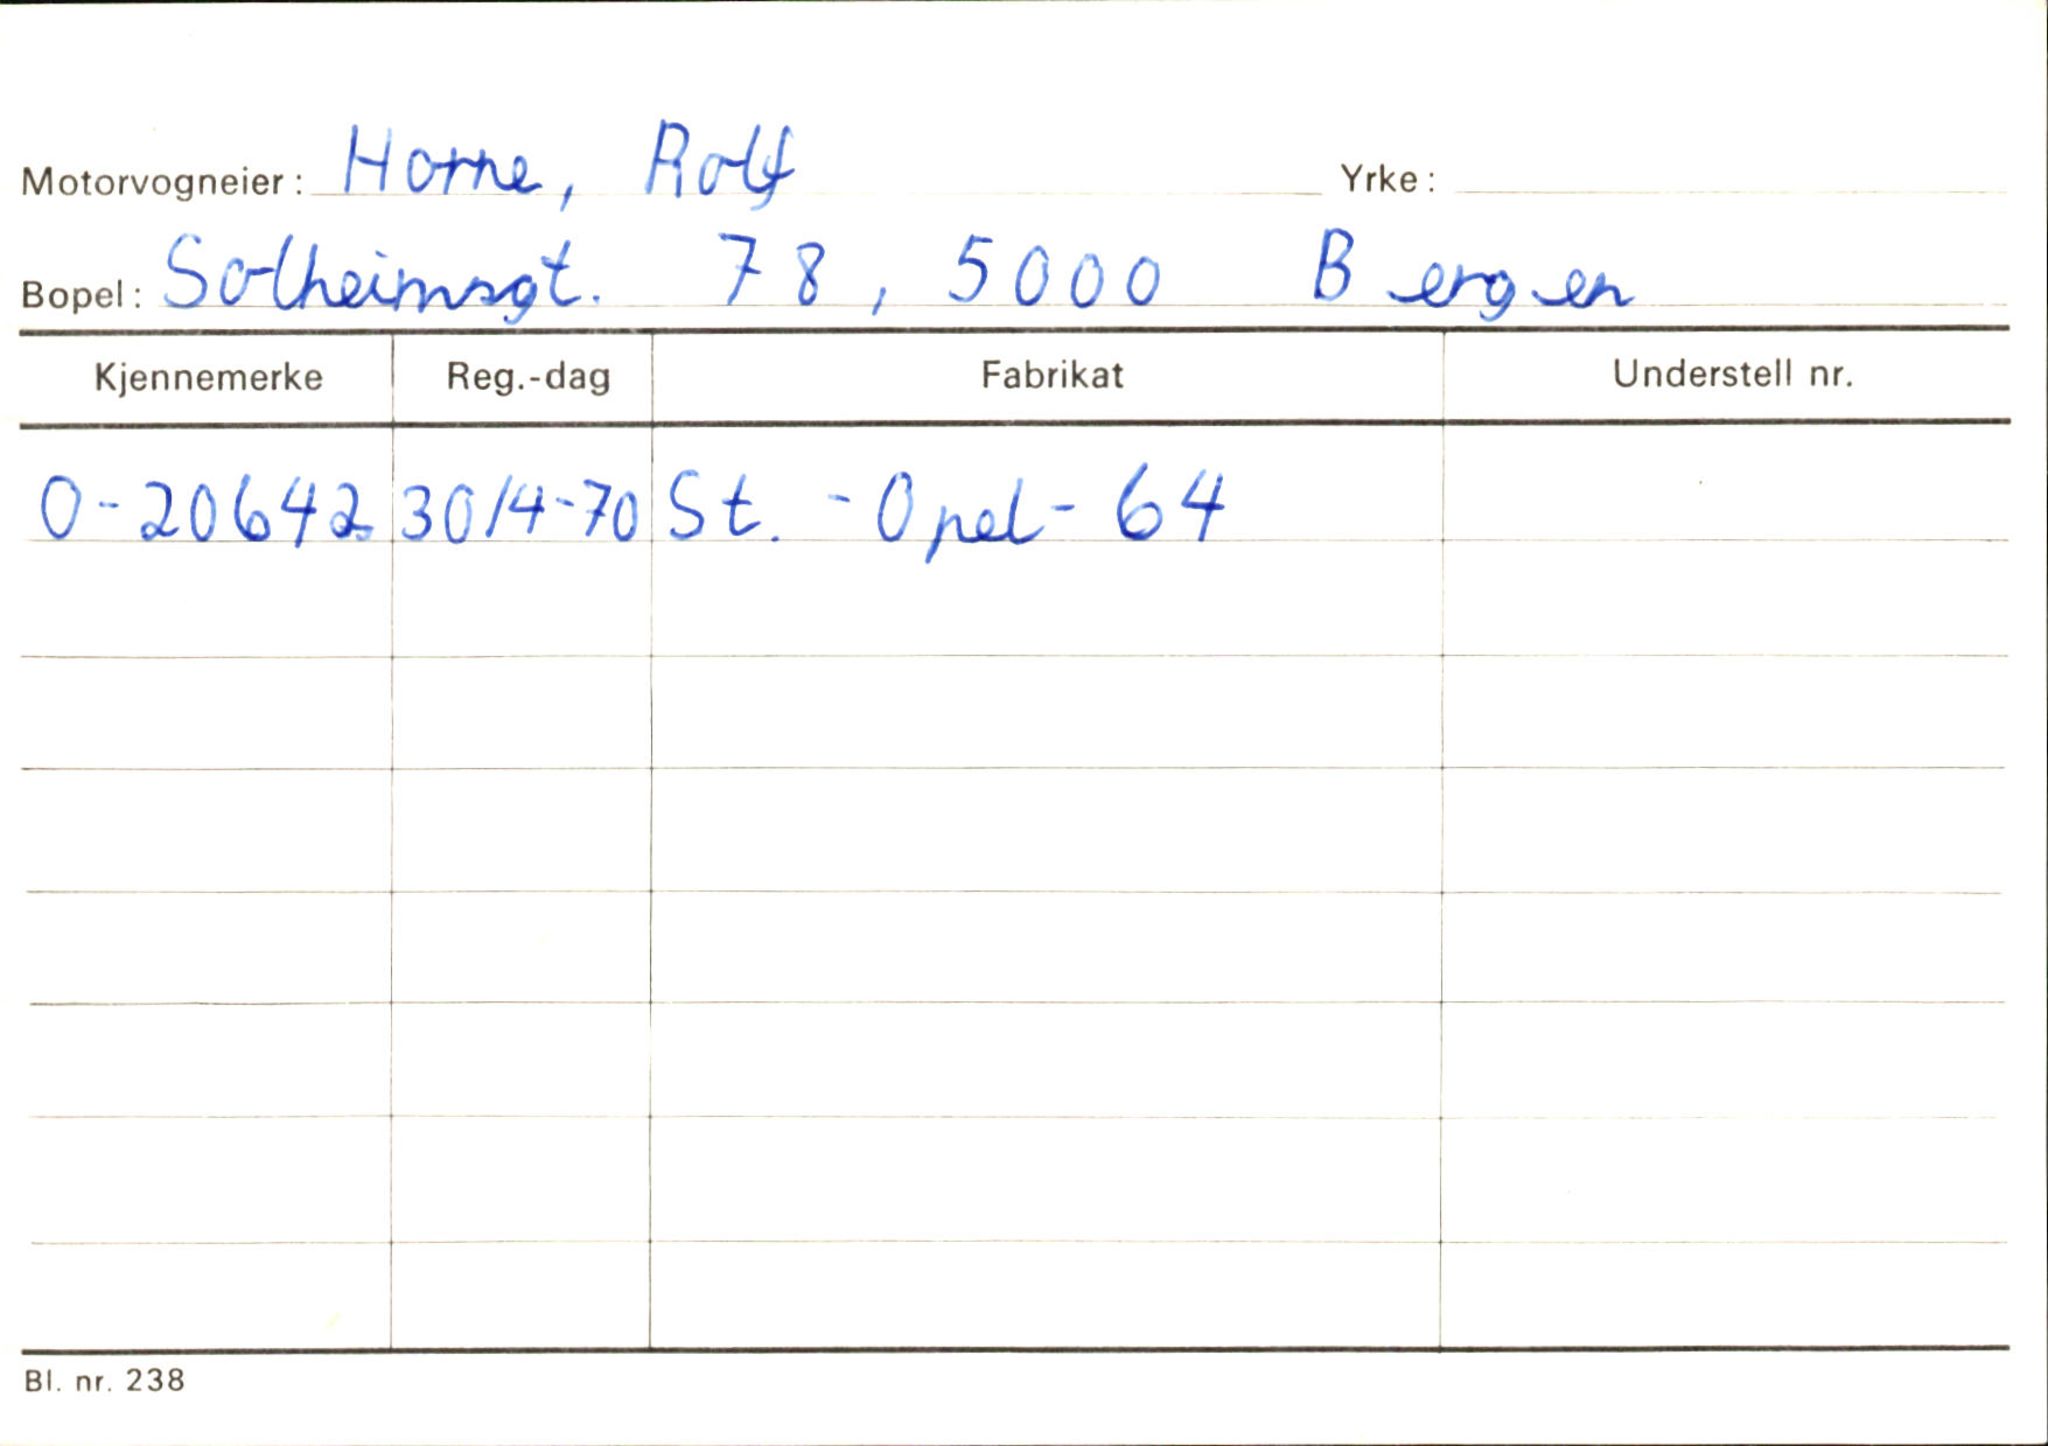 Motorvogneier: Horne, Rolf Yrke:
Bopel: Solheimsgt. 78, 5000 Bergen
Kjennemerke Reg.-dag Fabrikat Understell nr.
O-20642 30/4-70 St. - Opel - 64
Bl. nr. 238